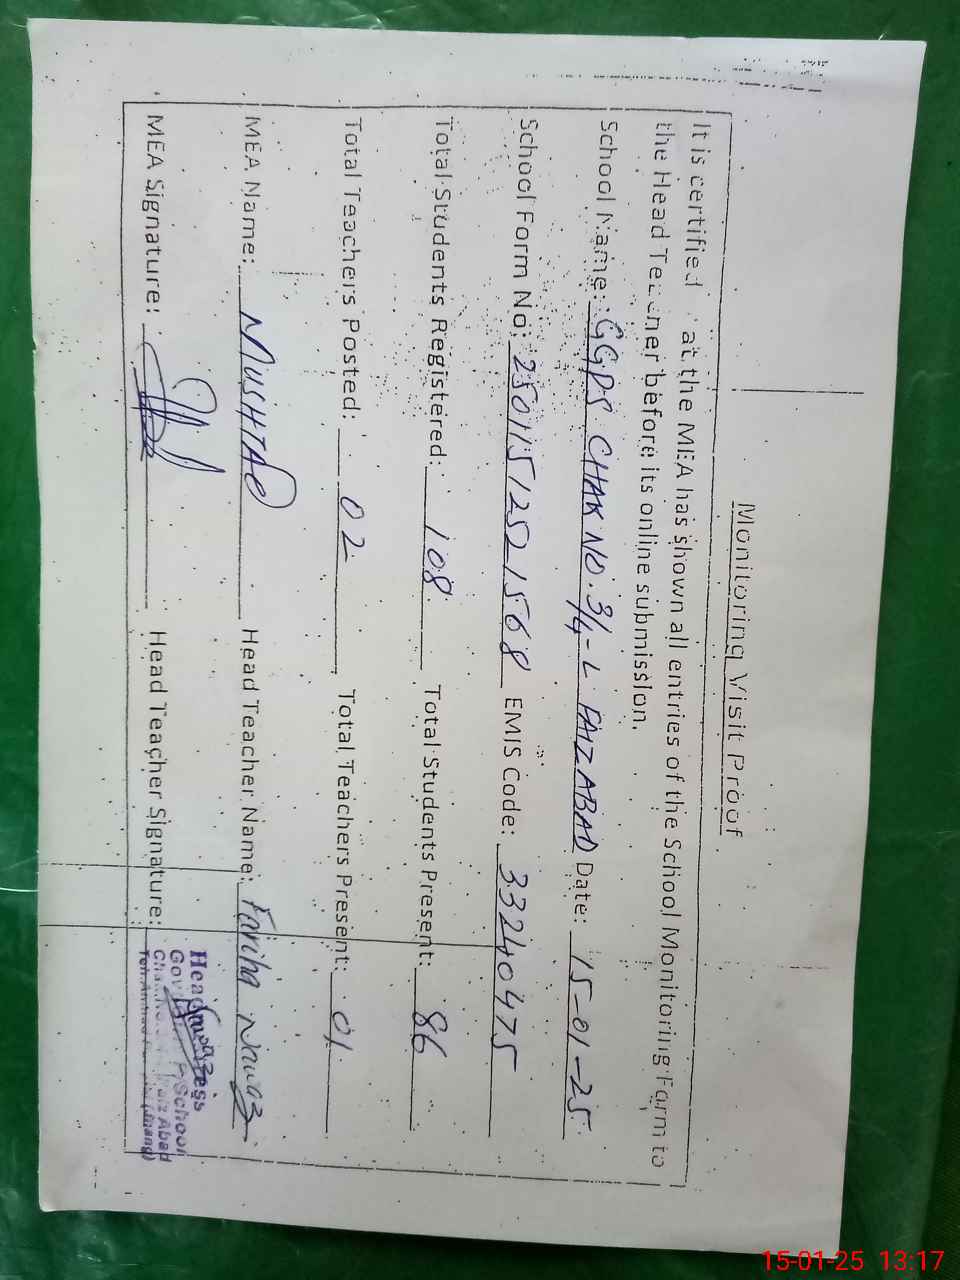 Monitoring Visit Proof
It is certified at the MEA has shown all entries of the School Monitoring Farm to
the Head Teacher before its online submission.
School Name: GGPS CHAK NO. 3/4-L FAIZABAD Date: 15-01-25
School Form No: 25011512521568 EMIS Code: 33240475
Total Students Registered: 108 Total Students Present: 86
Total Teachers Posted: 02 Total Teachers Present: 01
MEA Name: MUSHTAQ Head Teacher Name: Fariha Nawaz
MEA Signature: Head Teacher Signature:
Headmistress
School
Abad
15-01-25 13:17